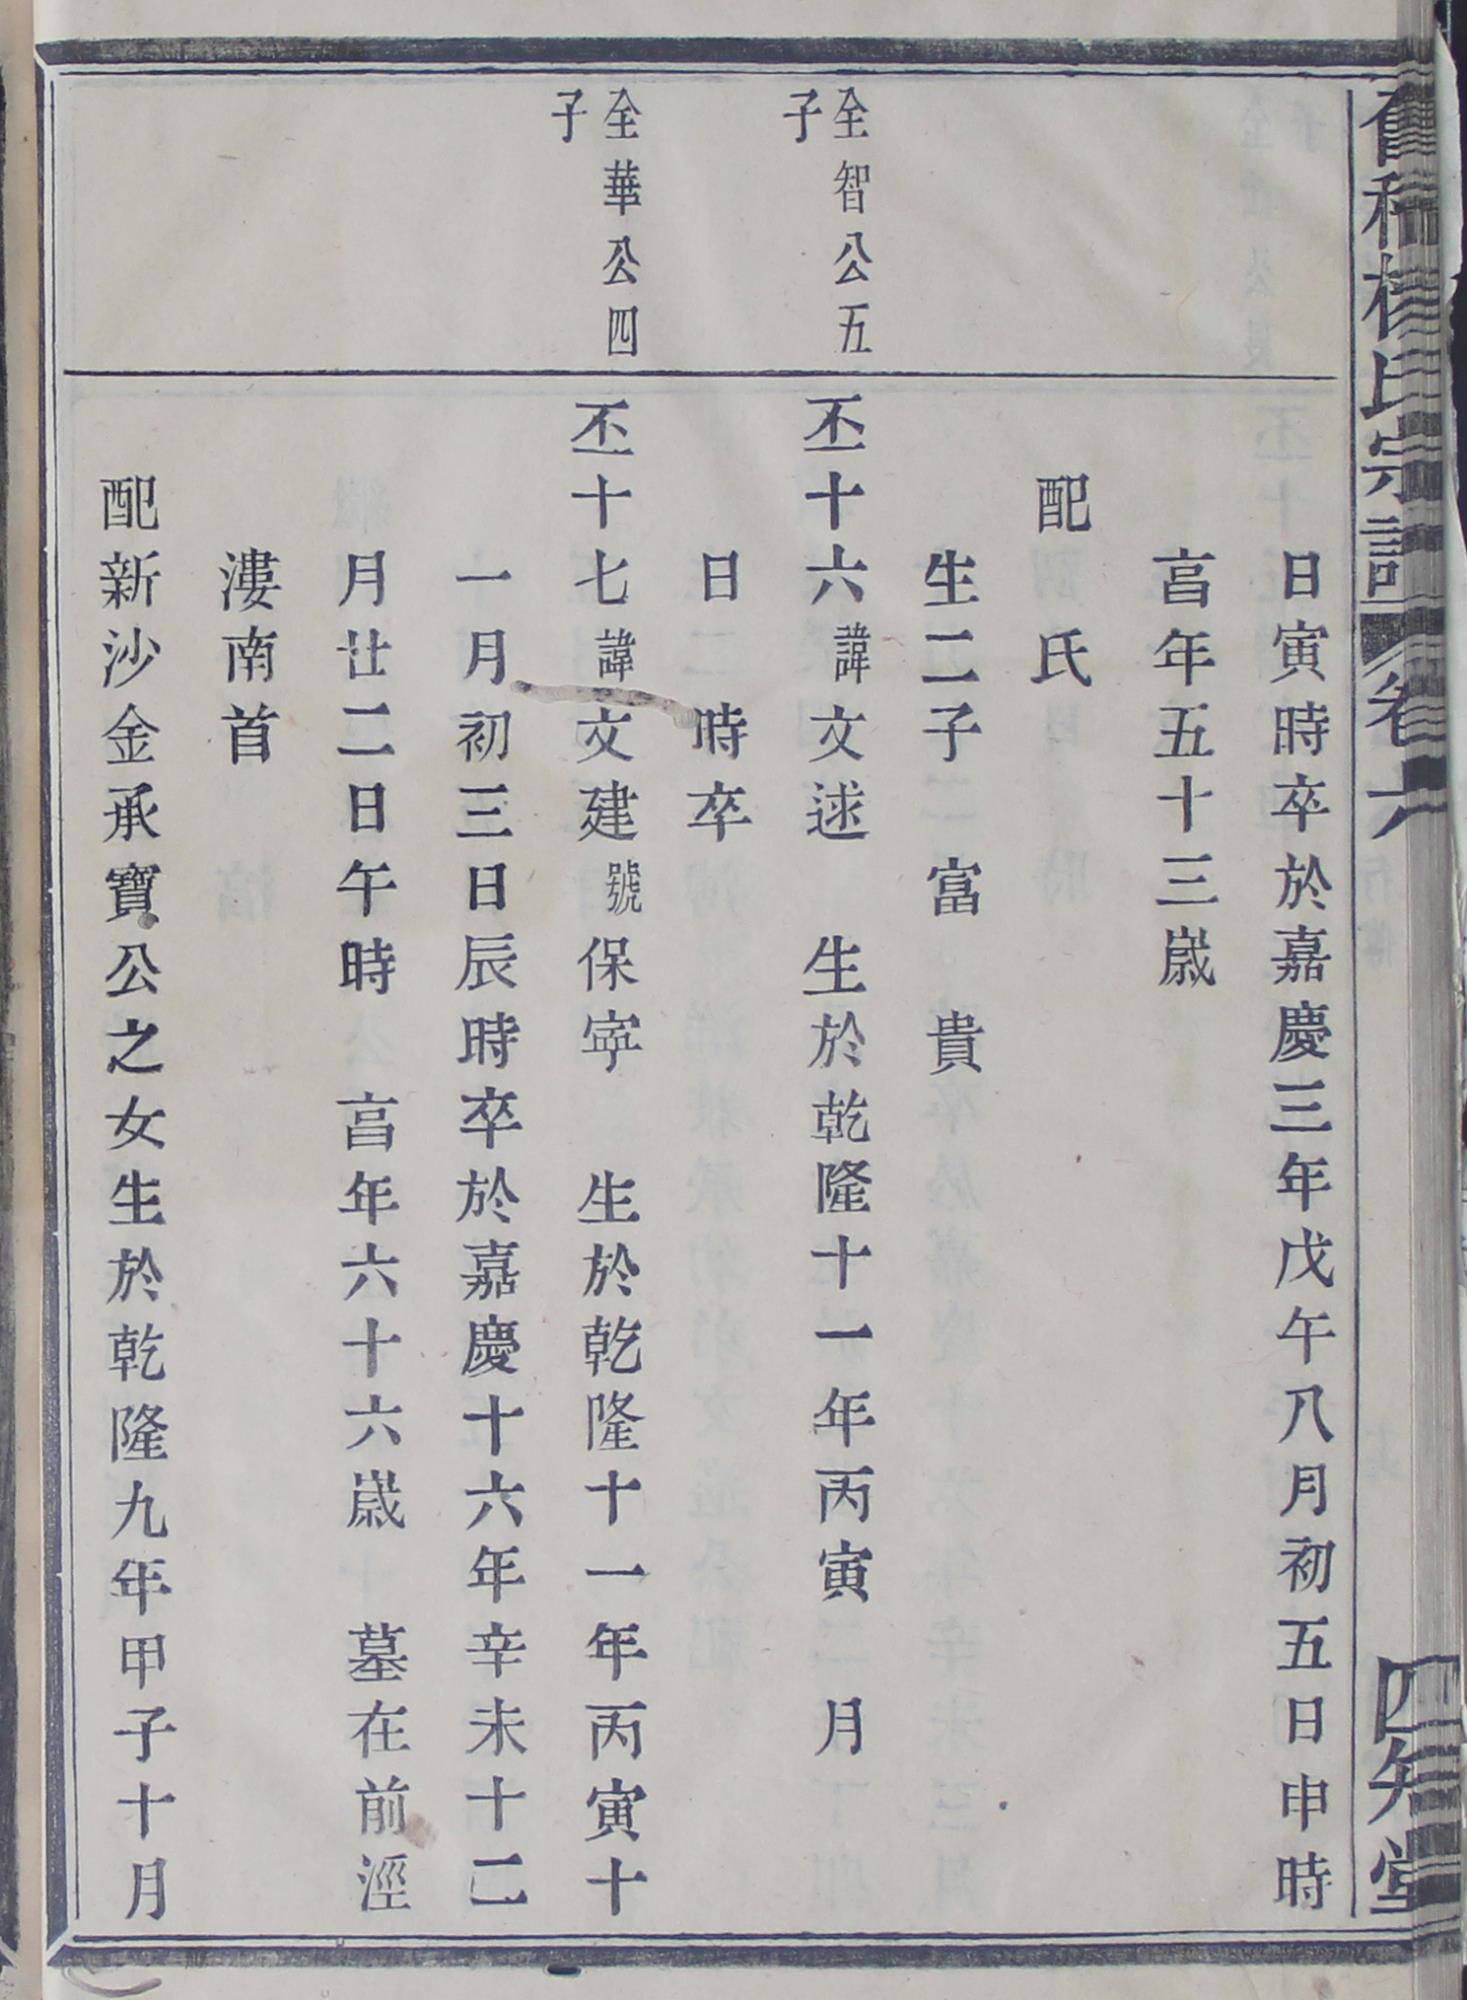 楊氏宗譜 卷六 四知堂
日寅時卒於嘉慶三年戊午八月初五日申時
亯年五十三嵗
配 氏
生二子 富 貴
全智公五
子
丕十六諱文逑 生於乾隆十一年丙寅 月
日 時卒
全華公四
子
丕十七諱文建號保寧 生於乾隆十一年丙寅十
一月初三日辰時卒於嘉慶十六年辛未十二
月廿二日午時 亯年六十六嵗 墓在前涇
漊南首
配新沙金承寶公之女生於乾隆九年甲子十月